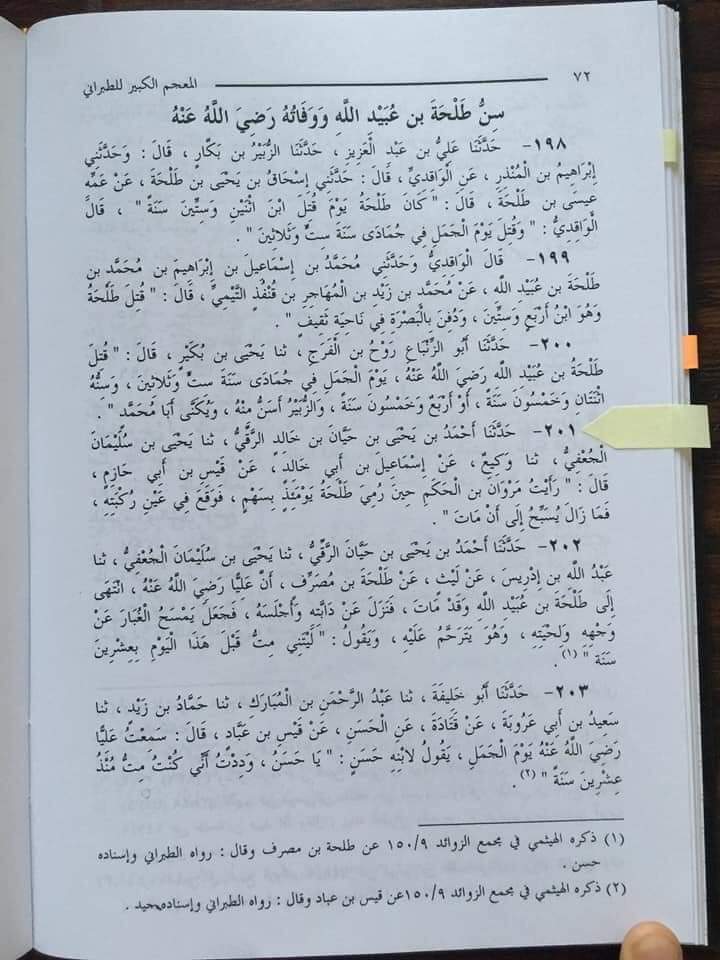 ٧٢ المعجم الكبير للطبراني
سِنُّ طَلْحَةَ بن عُبَيْد اللَّهِ وَوَفَاتُهُ رَضِيَ اللَّهُ عَنْهُ
١٩٨- حَدَّثَنَا عَلِيُّ بن عَبْدِ الْعَزِيزِ ، حَدَّثَنَا الزُّبَيْرُ بن بَكَّارٍ ، قَالَ : وَحَدَّثَنِي
إِبْرَاهِيمُ بن الْمُنْذِرِ ، عَنِ الْوَاقِدِيِّ ، قَالَ : حَدَّثَنِي إِسْحَاقُ بن يَحْيَى بن طَلْحَةَ ، عَنْ عَمِّهِ
عِيسَى بن طَلْحَةَ ، قَالَ : " كَانَ طَلْحَةُ يَوْمَ قُتِلَ ابْنَ اثْنَتَيْنِ وَسِتِّينَ سَنَةً " ، قَالَ
الْوَاقِدِيُّ : " وَقُتِلَ يَوْمَ الْجَمَلِ فِي جُمَادَى سَنَةَ سِتٍّ وَثَلاثِينَ " .
١٩٩- قَالَ الْوَاقِدِيُّ وَحَدَّثَنِي مُحَمَّدُ بن إِسْمَاعِيلَ بن إِبْرَاهِيمَ بن مُحَمَّدِ بن
طَلْحَةَ بن عُبَيْدِ اللَّه ، عَنْ مُحَمَّدِ بن زَيْدِ بن الْمُهَاجِرِ بن قُنْفُذٍ التَّيْمِيِّ ، قَالَ : " قُتِلَ طَلْحَةُ
وَهُوَ ابْنُ أَرْبَعٍ وَسِتِّينَ ، وَدُفِنَ بِالْبَصْرَةِ فِي نَاحِيَةِ ثَقِيفٍ " .
٢٠٠- حَدَّثَنَا أَبُو الزِّنْبَاعِ رَوْحُ بن الْفَرَجِ ، ثنا يَحْيَى بن بُكَيْرٍ ، قَالَ : " قُتِلَ
طَلْحَةُ بن عُبَيْدِ اللَّهِ رَضِيَ اللَّهُ عَنْهُ ، يَوْمَ الْجَمَلِ فِي جُمَادَى سَنَةَ سِتٍّ وَثَلاثِينَ ، وَسِنُّهُ
اثْنَتَانِ وَخَمْسُونَ سَنَةً ، أَوْ أَرْبَعٌ وَخَمْسُونَ سَنَةً ، وَالزُّبَيْرُ أَسَنُّ مِنْهُ ، وَيُكَنَّى أَبَا مُحَمَّدٍ " .
٢٠١- حَدَّثَنَا أَحْمَدُ بن يَحْيَى بن حَيَّانَ بن خَالِدٍ الرَّقِّيُّ ، ثنا يَحْيَى بن سُلَيْمَانَ
الْجُعْفِيُّ ، ثنا وَكِيعٌ ، عَنْ إِسْمَاعِيلَ بن أَبِي خَالِدٍ ، عَنْ قَيْسِ بن أَبِي حَازِمٍ ،
قَالَ : " رَأَيْتُ مَرْوَانَ بن الْحَكَمِ حِينَ رُمِيَ طَلْحَةُ يَوْمَئِذٍ بِسَهْمٍ ، فَوَقَعَ فِي عَيْنِ رُكْبَتِهِ ،
فَمَا زَالَ يُسَبِّحُ إِلَى أَنْ مَاتَ " .
٢٠٢- حَدَّثَنَا أَحْمَدُ بن يَحْيَى بن حَيَّانَ الرَّقِّيُّ ، ثنا يَحْيَى بن سُلَيْمَانَ الْجُعْفِيُّ ، ثنا
عَبْدُ اللَّه بن إِدْرِيسَ ، عَنْ لَيْثٍ ، عَنْ طَلْحَةَ بن مُصَرِّفٍ ، أَنَّ عَلِيًّا رَضِيَ اللَّهُ عَنْهُ ، انْتَهَى
إِلَى طَلْحَةَ بن عُبَيْدِ اللَّهِ وَقَدْ مَاتَ ، فَنَزَلَ عَنْ دَابَّتِهِ وَأَجْلَسَهُ ، فَجَعَلَ يَمْسَحُ الْغُبَارَ عَنْ
وَجْهِهِ وَلِحْيَتِهِ ، وَهُوَ يَتَرَحَّمُ عَلَيْهِ ، وَيَقُولُ : " لَيْتَنِي مِتُّ قَبْلَ هَذَا الْيَوْمِ بِعِشْرِينَ
سَنَةً " (١) .
٢٠٣- حَدَّثَنَا أَبُو خَلِيفَةَ ، ثنا عَبْدُ الرَّحْمَنِ بن الْمُبَارَكِ ، ثنا حَمَّادُ بن زَيْدٍ ، ثنا
سَعِيدُ بن أَبِي عَرُوبَةَ ، عَنْ قَتَادَةَ ، عَنِ الْحَسَنِ ، عَنْ قَيْسِ بن عَبَّادٍ ، قَالَ : سَمِعْتُ عَلِيًّا
رَضِيَ اللَّهُ عَنْهُ يَوْمَ الْجَمَلِ ، يَقُولُ لابْنِهِ حَسَنٍ : " يَا حَسَنُ ، وَدِدْتُ أَنِّي كُنْتُ مِتُّ مُنْذُ
عِشْرِينَ سَنَةً " (٢) .
(١) ذكره الهيثمي في مجمع الزوائد ١٥٠/٩ عن طلحة بن مصرف وقال : رواه الطبراني وإسناده
حسن .
(٢) ذكره الهيثمي في مجمع الزوائد ١٥٠/٩عن قيس بن عباد وقال : رواه الطبراني وإسناده جيد .